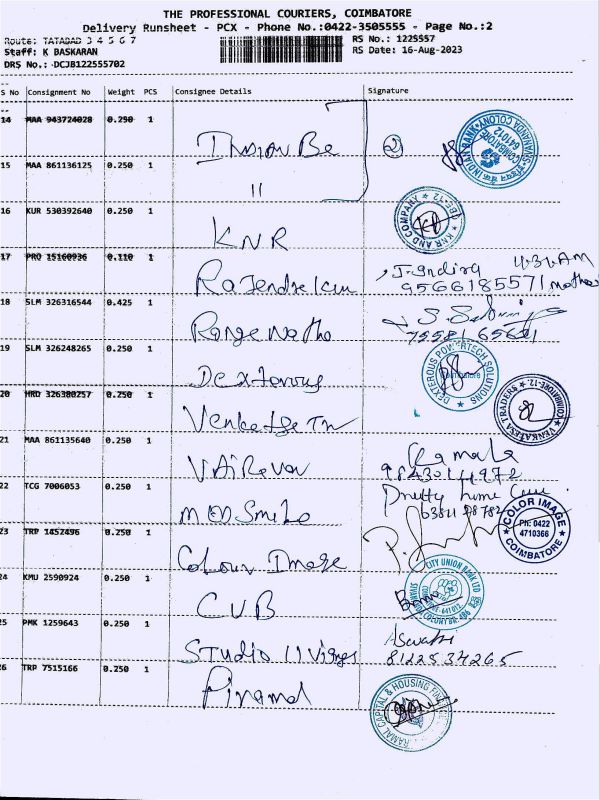 THE PROFESSIONAL COURIERS, COIMBATORE
Delivery Runsheet - PCX - Phone No.:0422-3505555 - Page No.:2
Route: TATABAD 3 4 5 6 7
RS No.: 1225557
Staff: K BASKARAN
RS Date: 16-Aug-2023
DRS No.: DCJB122555702
S No Consignment No Weight PCS Consignee Details Signature
14 MAA 943724028 0.250 1 Indian Be 2
INDIAN BANK COIMBATORE 641012
15 MAA 861136125 0.250 1 "
16 KUR 530392640 0.250 1 KNR
KNR AND COMPANY
17 PRO 15160936 0.110 1 Rajendrekum J. Indira
9566185571
18 SLM 326316544 0.425 1 Range Natha
19 SLM 326248265 0.250 1 Dexterous
DEXTEROUS POWERTECH SOLUTIONS Coimbatore
20 HRD 326380257 0.250 1 Venketse Tn
VENKATESA TRADERS COIMBATORE-12
21 MAA 861135640 0.250 1 VAiRavan Kamala
22 TCG 7006053 0.250 1 MOD Smile
23 TRP 1452496 0.250 1 Colour Image
COLOR IMAGE Ph: 0422 4710366 COIMBATORE
24 KMU 2590924 0.250 1 CUB
CITY UNION BANK LTD
25 PMK 1259643 0.250 1 Studio 11 Aswathi
8122534265
26 TRP 7515166 0.250 1 Piramal
CAPITAL & HOUSING